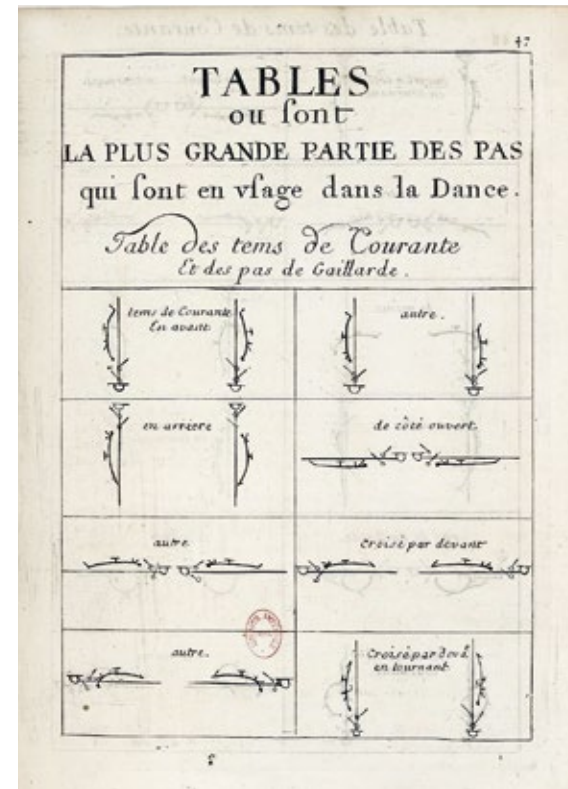 47
TABLES
ou ſont
LA PLUS GRANDE PARTIE DES PAS
qui ſont en vſage dans la Dance.
Table des tems de Courante
Et des pas de Gaillarde.
tems de Courante
En avant
autre.
en arriere
de côté ouvert.
autre
Croisé par devant
autre.
Croisé par
en tournant